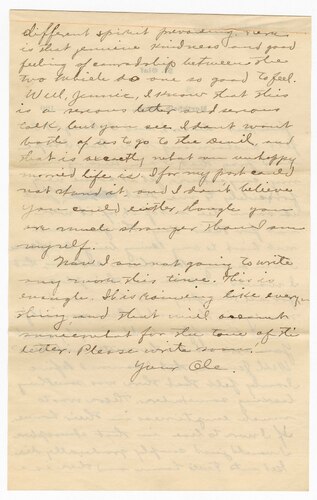 different spirit prevading. There
is that genuine kindness and good
feeling of comradship between the
two which do one so good to feel.
Well, Jennie, I know that this
is a serious letter and serious
talk, but you see I dont want
both of us to go to the Devil, and
that is exactly what an unhappy
married life is. I for my part could
not stand it, and I dont believe
you could either, though you
are much stronger than I am
myself.
Now I am not going to write
any more this time. This is
enough. It is raining like every
thing and that will account
somewhat for the tone of the
letter. Please write soon.
Your Ole.